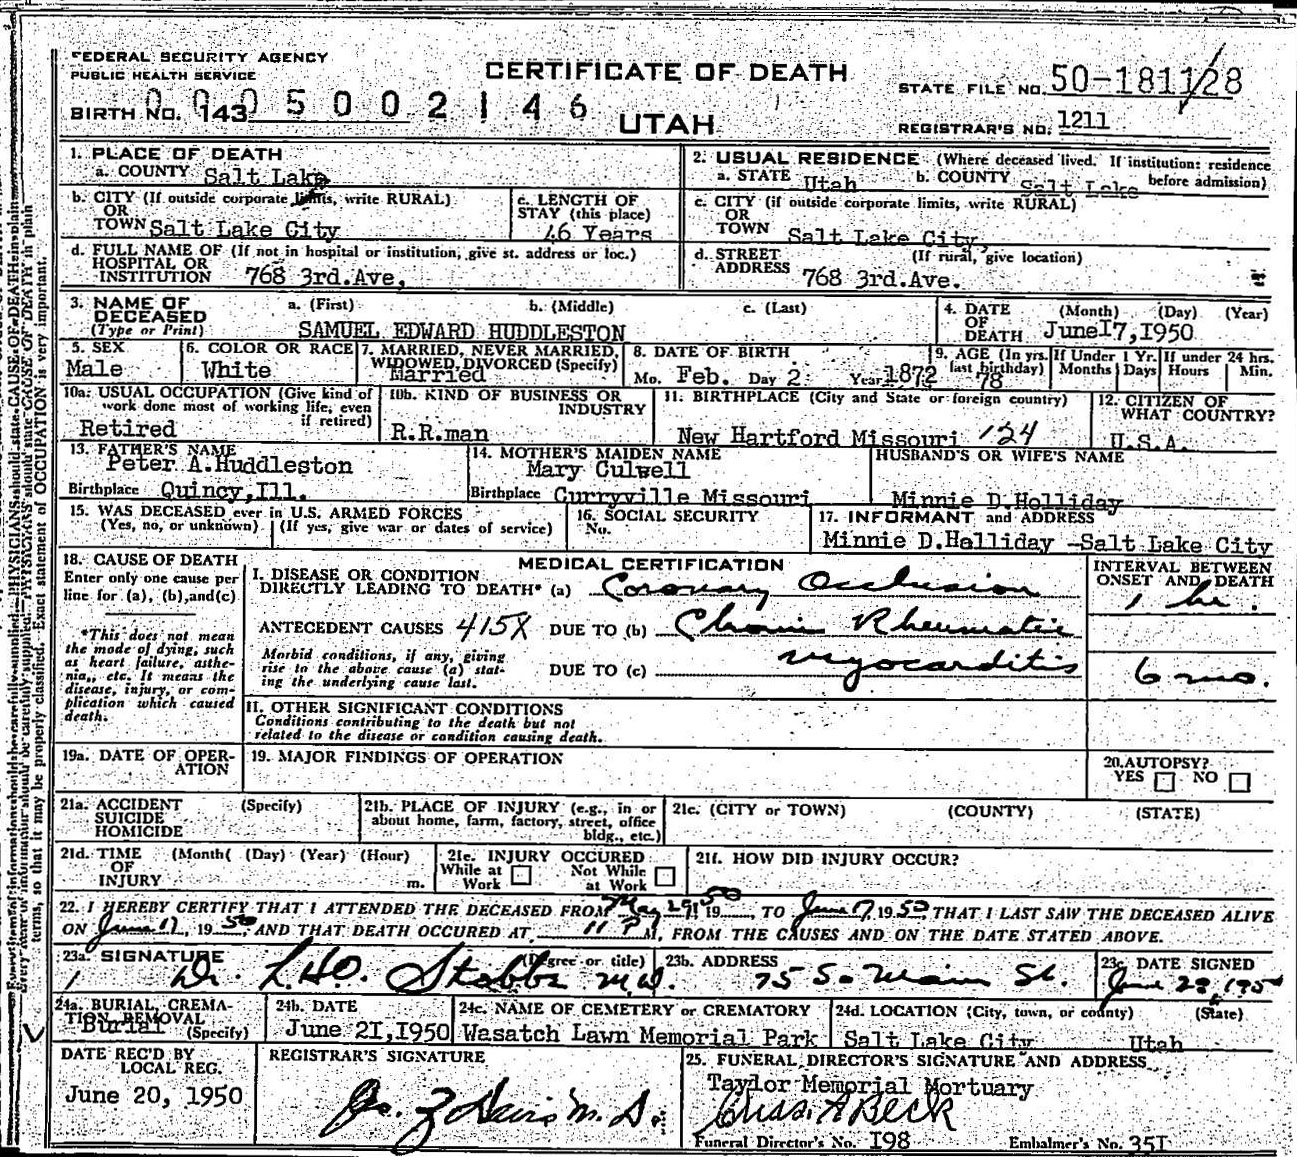 FEDERAL SECURITY AGENCY
PUBLIC HEALTH SERVICE
CERTIFICATE OF DEATH
STATE FILE NO. 50-1811/28
BIRTH NO. 143 0005002146
UTAH
REGISTRAR'S NO. 1211
1. PLACE OF DEATH
a. COUNTY Salt Lake
2. USUAL RESIDENCE (Where deceased lived. If institution: residence before admission)
a. STATE Utah b. COUNTY Salt Lake
b. CITY (If outside corporate limits, write RURAL)
OR
TOWN Salt Lake City
c. LENGTH OF
STAY (this place)
46 Years
c. CITY (if outside corporate limits, write RURAL)
OR
TOWN Salt Lake City,
d. FULL NAME OF (If not in hospital or institution, give st. address or loc.)
HOSPITAL OR
INSTITUTION 768 3rd.Ave,
d. STREET (If rural, give location)
ADDRESS 768 3rd.Ave.
3. NAME OF
DECEASED
(Type or Print)
a. (First) b. (Middle) c. (Last)
SAMUEL EDWARD HUDDLESTON
4. DATE (Month) (Day) (Year)
OF
DEATH June I7,1950
5. SEX
Male
6. COLOR OR RACE
White
7. MARRIED, NEVER MARRIED,
WIDOWED, DIVORCED (Specify)
Married
8. DATE OF BIRTH
Mo. Feb. Day 2 Year 1872
9. AGE (In yrs. last birthday)
78
If Under 1 Yr.
Months Days
If under 24 hrs.
Hours Min.
10a. USUAL OCCUPATION (Give kind of
work done most of working life, even
if retired)
Retired
10b. KIND OF BUSINESS OR
INDUSTRY
R.R.man
11. BIRTHPLACE (City and State or foreign country)
New Hartford Missouri 124
12. CITIZEN OF
WHAT COUNTRY?
U.S.A.
13. FATHER'S NAME
Peter A.Huddleston
Birthplace Quincy,Ill.
14. MOTHER'S MAIDEN NAME
Mary Culwell
Birthplace Curryville Missouri
HUSBAND'S OR WIFE'S NAME
Minnie D.Holliday
15. WAS DECEASED ever in U.S. ARMED FORCES
(Yes, no, or unknown) (If yes, give war or dates of service)
16. SOCIAL SECURITY
No.
17. INFORMANT and ADDRESS
Minnie D.Halliday -Salt Lake City
18. CAUSE OF DEATH
Enter only one cause per
line for (a), (b), and (c)
*This does not mean
the mode of dying, such
as heart failure, asthe-
nia,, etc. It means the
disease, injury, or com-
plication which caused
death.
MEDICAL CERTIFICATION
I. DISEASE OR CONDITION
DIRECTLY LEADING TO DEATH* (a) Coronary Occlusion
INTERVAL BETWEEN
ONSET AND DEATH
1 hr.
ANTECEDENT CAUSES 415X DUE TO (b) Chronic Rheumatic
Morbid conditions, if any, giving
rise to the above cause (a) stat-
ing the underlying cause last.
DUE TO (c) myocarditis
6 mo.
II. OTHER SIGNIFICANT CONDITIONS
Conditions contributing to the death but not
related to the disease or condition causing death.
19a. DATE OF OPER-
ATION
19. MAJOR FINDINGS OF OPERATION
20. AUTOPSY?
YES NO
21a. ACCIDENT (Specify)
SUICIDE
HOMICIDE
21b. PLACE OF INJURY (e.g., in or
about home, farm, factory, street, office
bldg., etc.)
21c. (CITY or TOWN) (COUNTY) (STATE)
21d. TIME (Month( (Day) (Year) (Hour)
OF
INJURY m.
21e. INJURY OCCURED
While at Work Not While at Work
21f. HOW DID INJURY OCCUR?
22. I HEREBY CERTIFY THAT I ATTENDED THE DECEASED FROM May 29, 1950, TO June 17, 1950 THAT I LAST SAW THE DECEASED ALIVE
ON June 17, 1950 AND THAT DEATH OCCURED AT 11 P M, FROM THE CAUSES AND ON THE DATE STATED ABOVE.
23a. SIGNATURE (Degree or title)
Dr. L.HO. Stobbe M.D.
23b. ADDRESS
75 So Main St.
23c. DATE SIGNED
June 1950
24a. BURIAL, CREMA-
TION, REMOVAL
Burial (Specify)
24b. DATE
June 2I,1950
24c. NAME OF CEMETERY or CREMATORY
Wasatch Lawn Memorial Park
24d. LOCATION (City, town, or county) (State)
Salt Lake City Utah
DATE REC'D BY
LOCAL REG.
June 20, 1950
REGISTRAR'S SIGNATURE
25. FUNERAL DIRECTOR'S SIGNATURE AND ADDRESS
Taylor Memorial Mortuary
A Beck
Funeral Director's No. I98 Embalmer's No. 35I